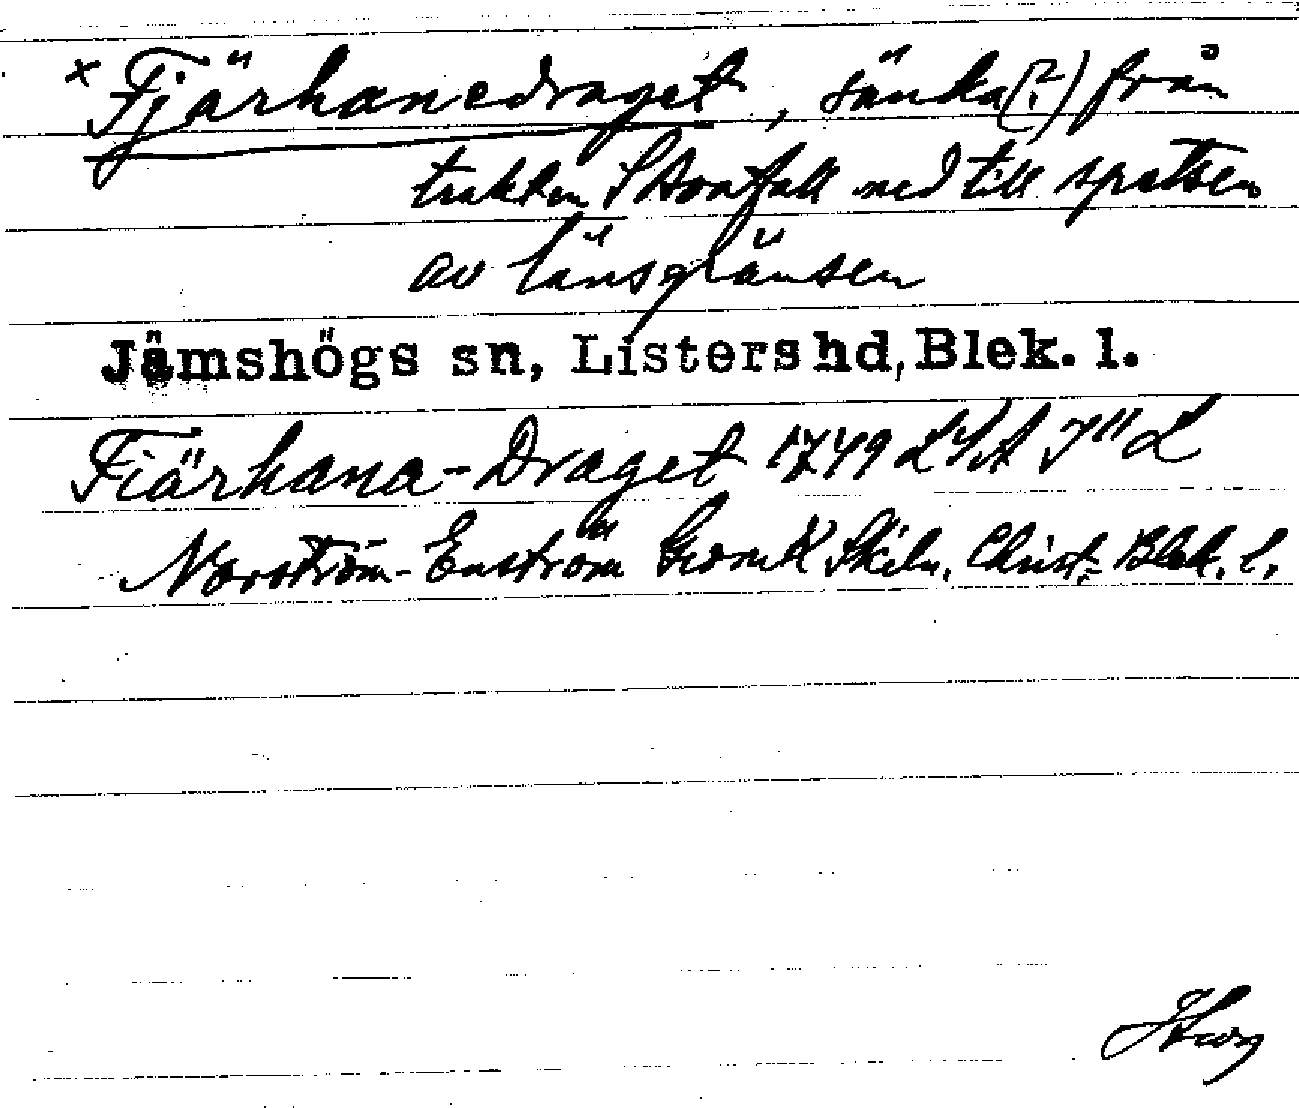 x Fjärhanedraget, sänka(?) från
trakten S Avonfall ned till spetsen
av länsgränsen
Jämshögs sn, Listers hd, Blek. l.
Fiärhana-Draget 1749 LSA J" L
Norström-Enström Skiln. Christ= Blek. l.